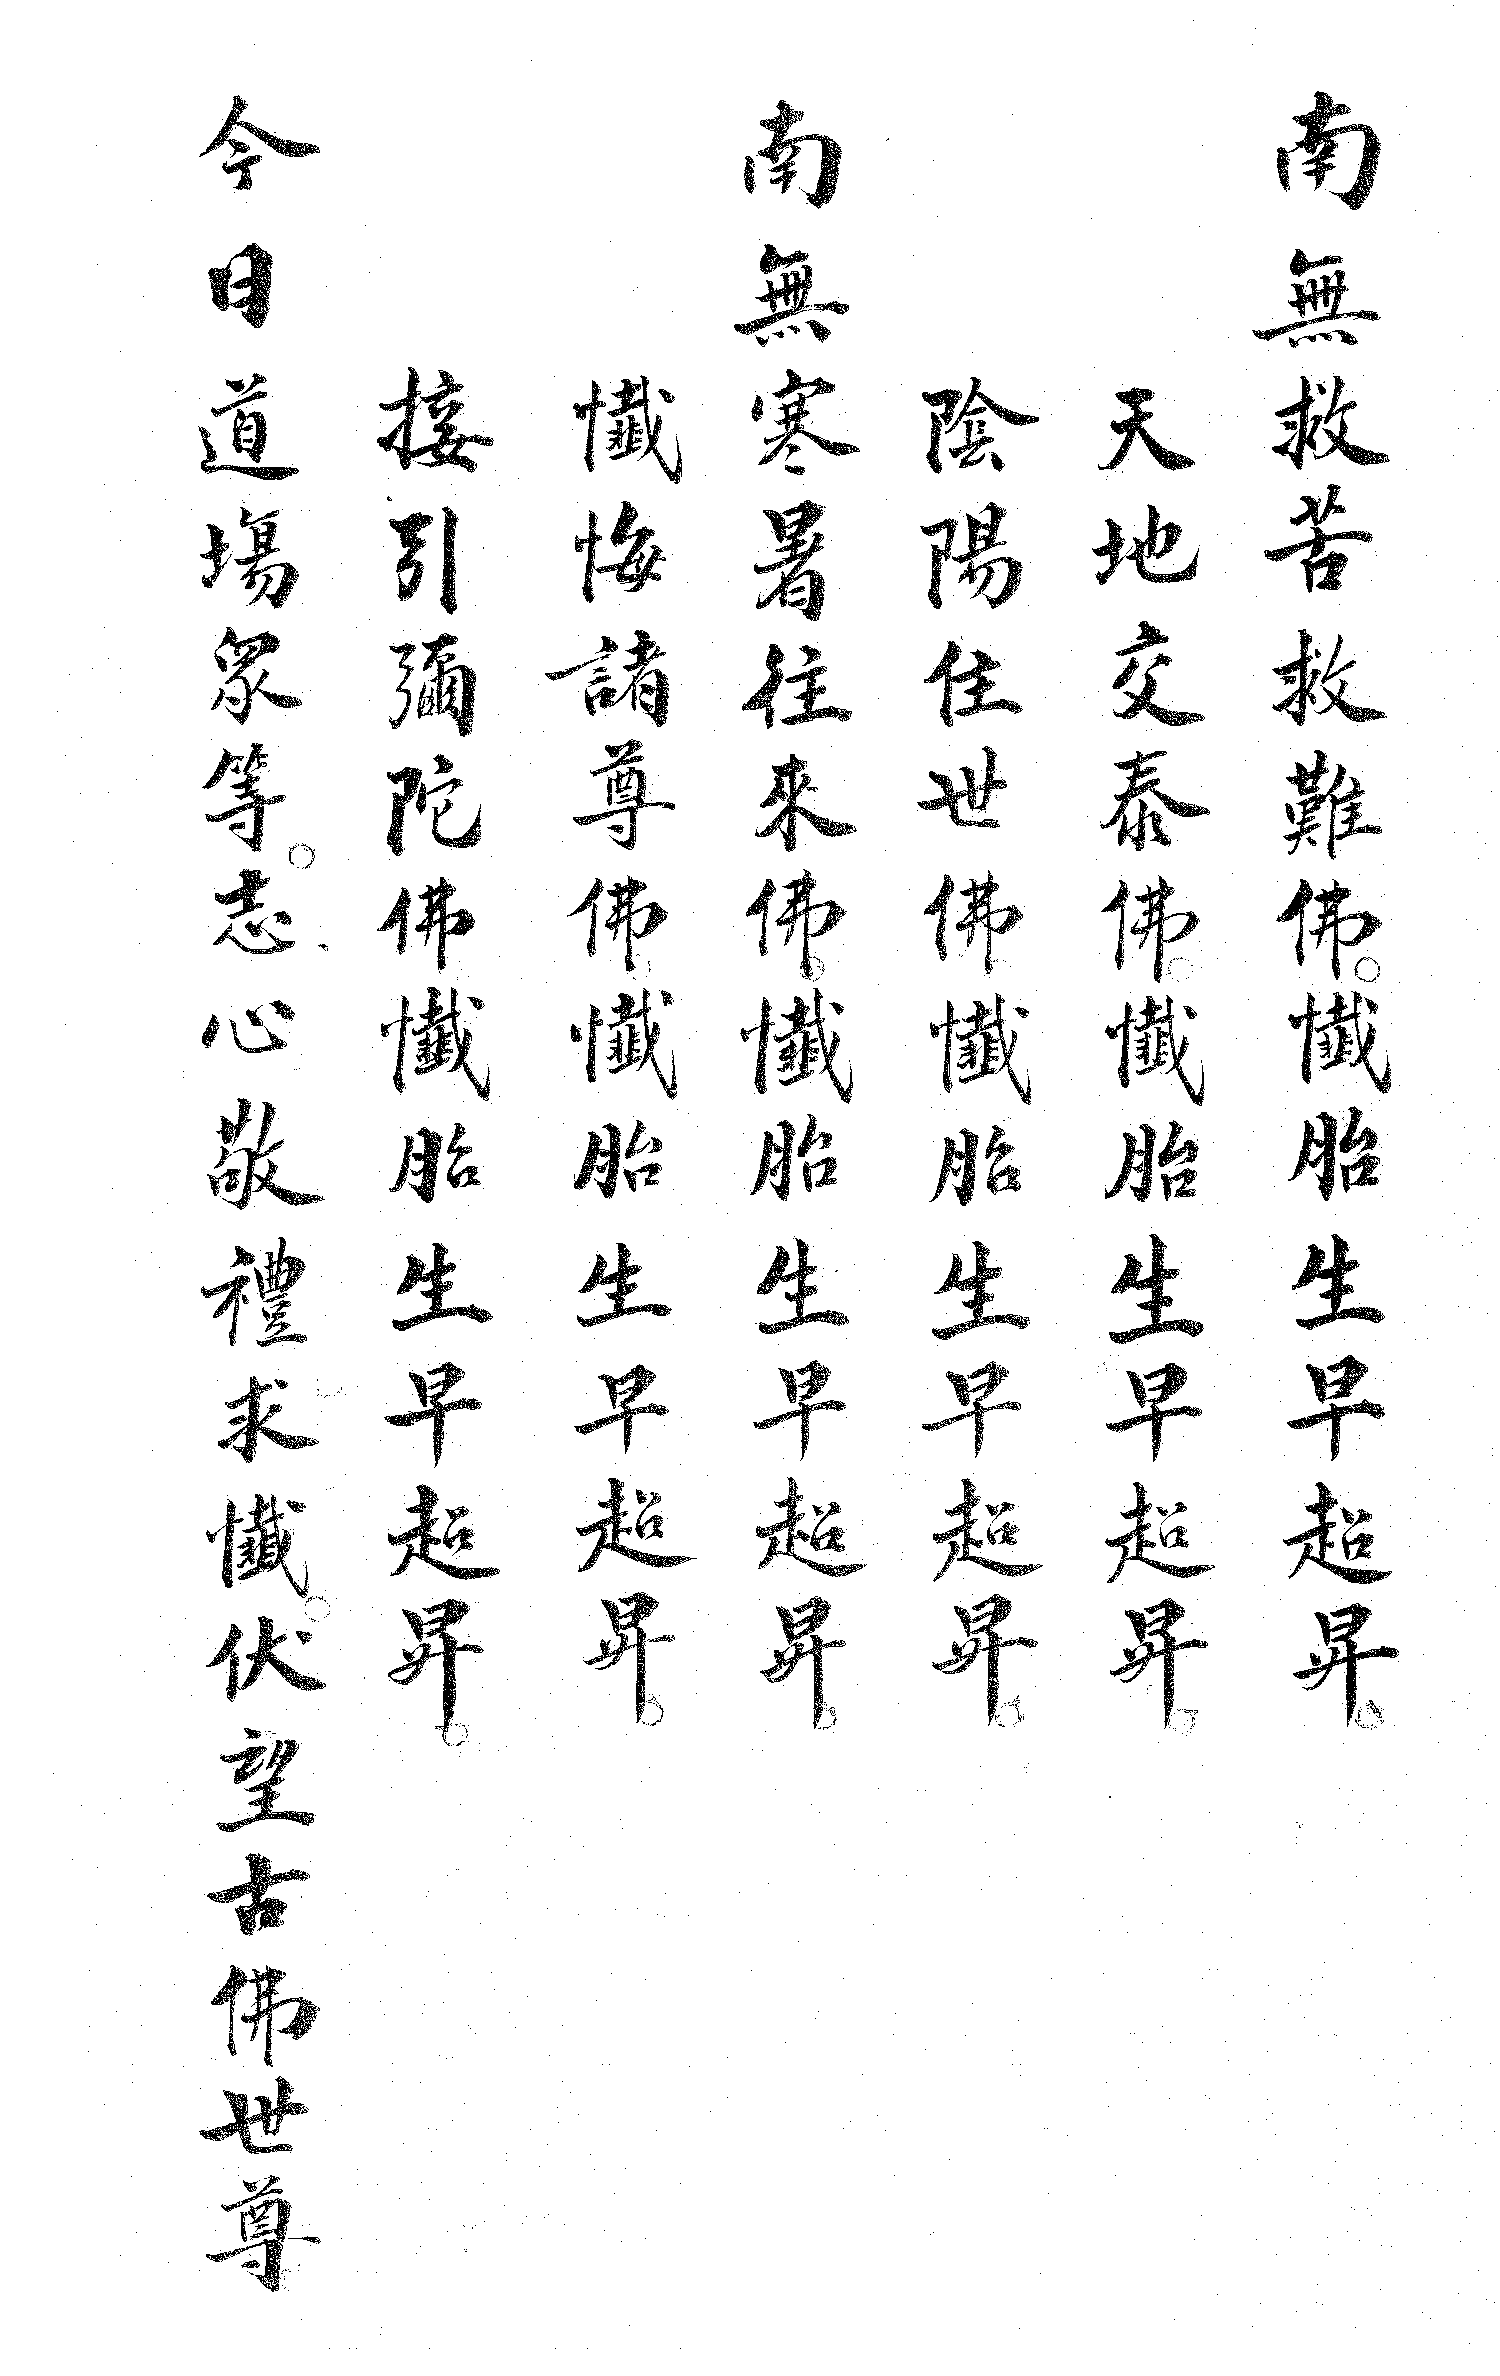 南無救苦救難佛。懺胎生早超昇。
天地交泰佛。懺胎生早超昇。
陰陽住世佛懺胎生早超昇。
南無寒暑往來佛。懺胎生早超昇。
懺悔諸尊佛。懺胎生早超昇。
接引彌陀佛懺胎生早超昇。
今日道場眾等。志心敬禮求懺。伏望古佛世尊。